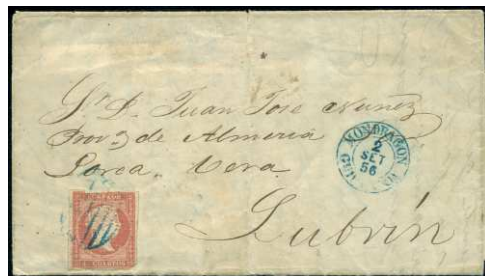 Sr. D. Juan Jose Nuñez
Prov.a de Almeria
Lorca. Vera.
Lubrin
MONDRAGON
2
SET
56
CUARTOS